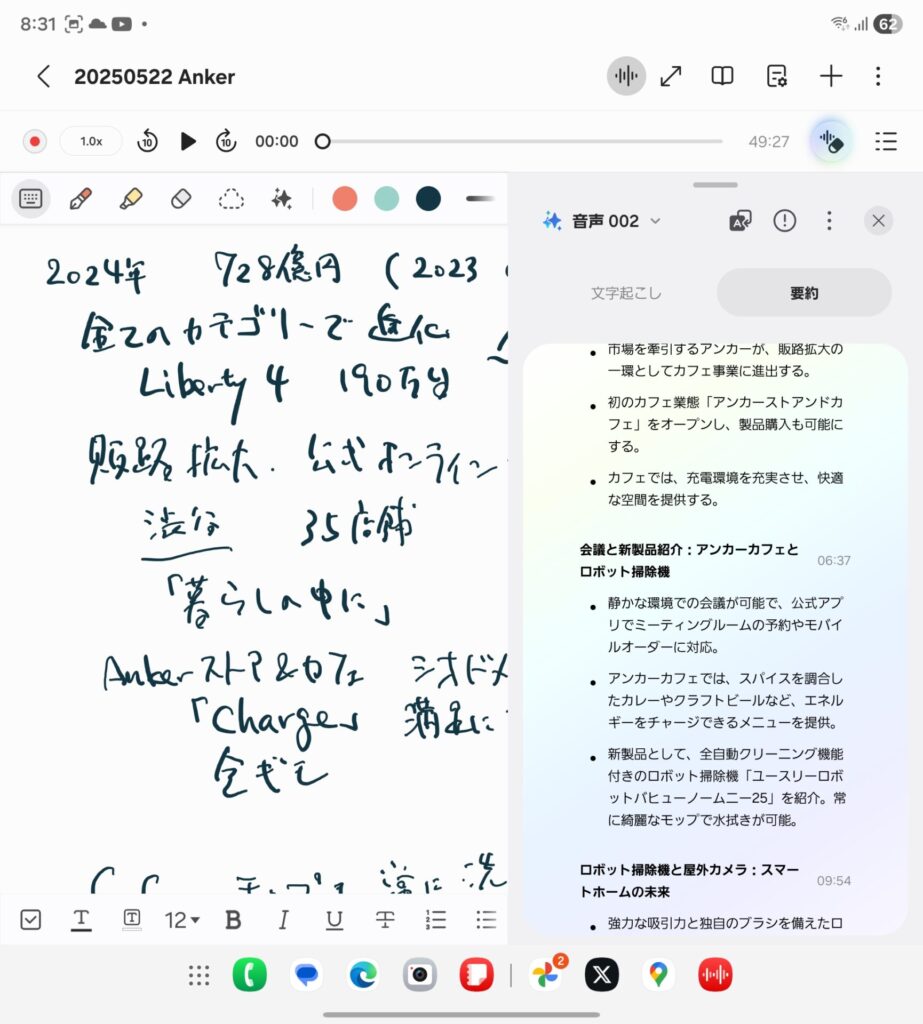 8:31
62
20250522 Anker
1.0x
10
10
00:00
49:27
音声 002
文字起こし
要約
2024年 728億円 (2023
全てのカテゴリーで進化
Liberty 4 190万台
販路拡大. 公式オンライン
渋谷 35店舗
「暮らしの中に」
Ankerストア&カフェ シオドメ
「Charge」 満足に
市場を牽引するアンカーが、販路拡大の
一環としてカフェ事業に進出する。
初のカフェ業態「アンカーストアンドカ
フェ」をオープンし、製品購入も可能に
する。
カフェでは、充電環境を充実させ、快適
な空間を提供する。
会議と新製品紹介：アンカーカフェと
ロボット掃除機
06:37
静かな環境での会議が可能で、公式アプ
リでミーティングルームの予約やモバイ
ルオーダーに対応。
アンカーカフェでは、スパイスを調合し
たカレーやクラフトビールなど、エネル
ギーをチャージできるメニューを提供。
新製品として、全自動クリーニング機能
付きのロボット掃除機「ユースリーロボ
ットバヒューノームニー25」を紹介。常
に綺麗なモップで水拭きが可能。
ロボット掃除機と屋外カメラ：スマー
トホームの未来
09:54
強力な吸引力と独自のブラシを備えたロ
T
T
12
B
I
U
T
2